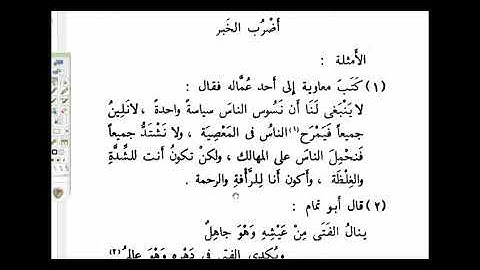 أَضْرُب الخَبر
الأَمثلة :
(١) كَتَبَ معاوية إلى أحد عُمَّاله فقال :
لا يَنْبَغى لَنَا أن نَسُوس الناسَ سياسةً واحدةً ، لانَلِينُ
جميعاً فَيَمْرَح(١) الناسُ فى المَعْصِيَة ، ولا نَشْتَدُّ جميعاً
فَنَحْمِلَ الناسَ على المهالك ، ولكنْ تكونُ أنت لِلشِّدَّةِ
والغِلْظَة ، وأكون أنا لِلرَّأْفةِ والرحمة .
(٢) قال أبو تمام :
ينالُ الفَتَى مِنْ عَيْشِهِ وَهْوَ جاهِلُ
ويُكْدِى الفتى فى دَهْرِه وَهْوَ عالِمُ(٢)